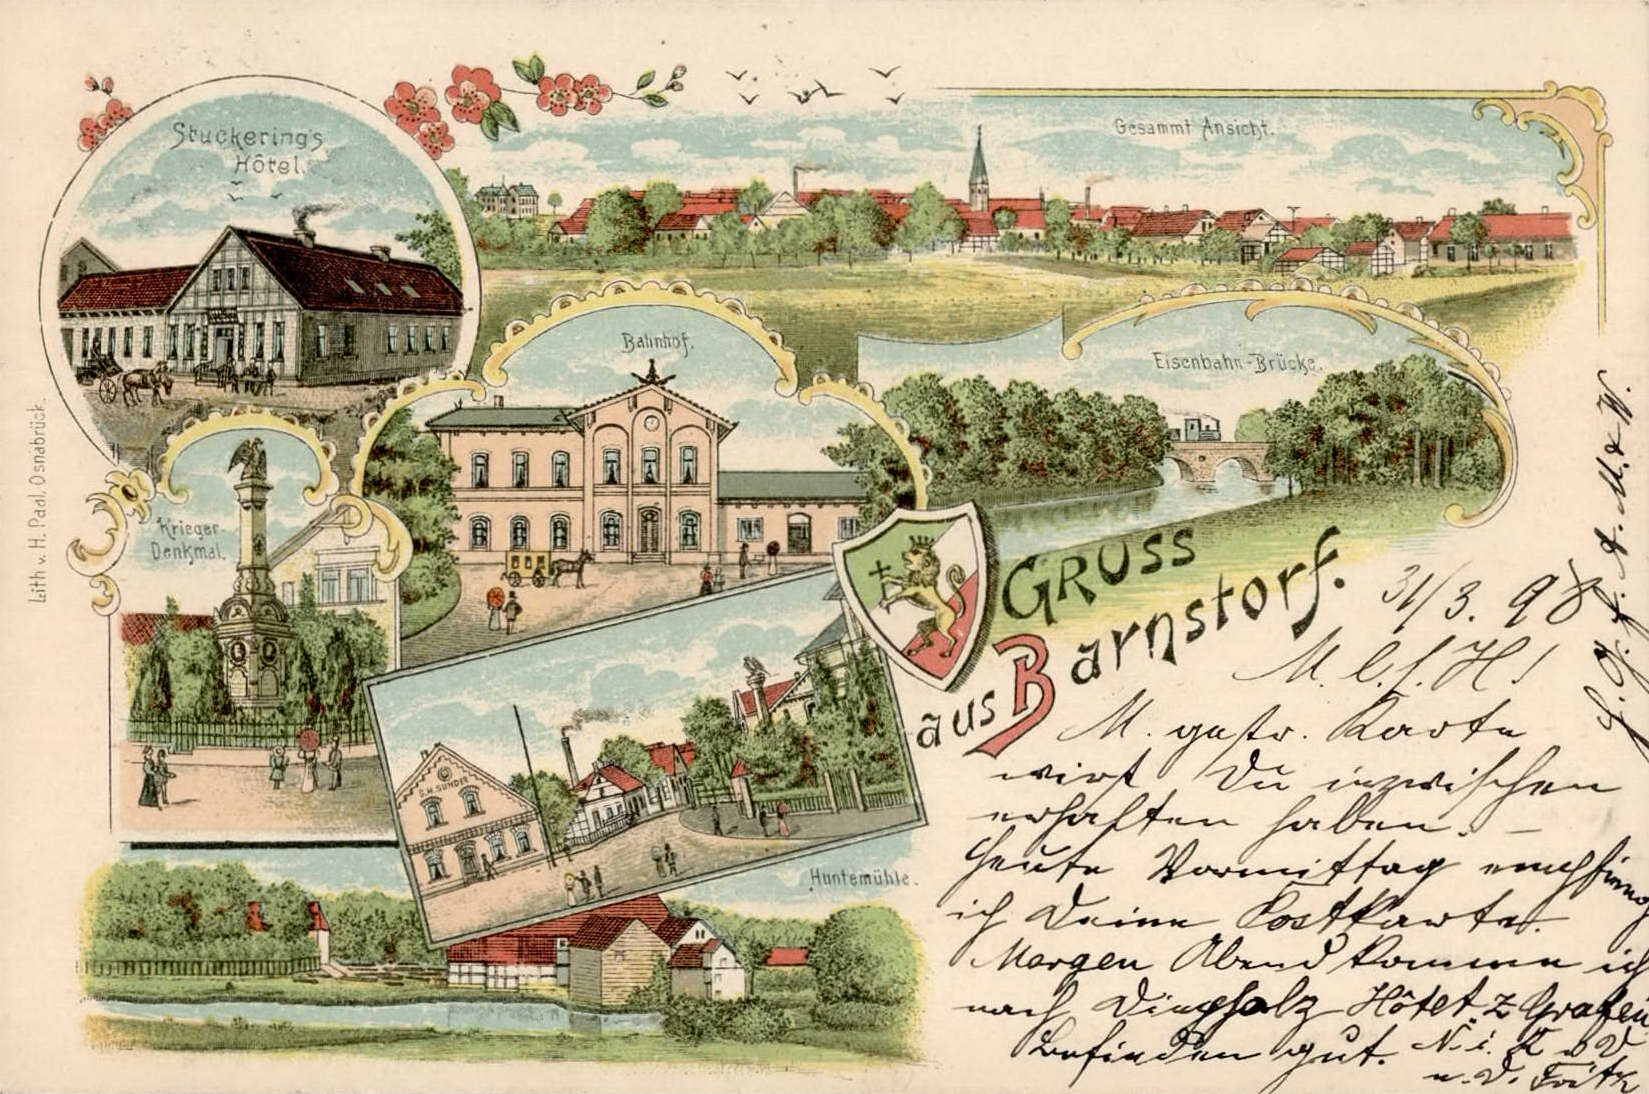 Stuckering's
Hôtel.
Gesammt Ansicht.
Bahnhof.
Eisenbahn-Brücke.
Krieger-
Denkmal.
G.H. SUNDER
Huntemühle.
Lith v. H. Padl, Osnabrück.
GRUSS
aus Barnstorf.
31/3. 98
M. l. f. H!
M. gestr. Karte
wirst Du inzwischen
erhalten haben. –
Heute Vormittag empfing
ich Deine Postkarte.
Morgen Abend komme ich
nach Diepholz Hôtel z Grafen
Befinden gut.
u. D. Fritz